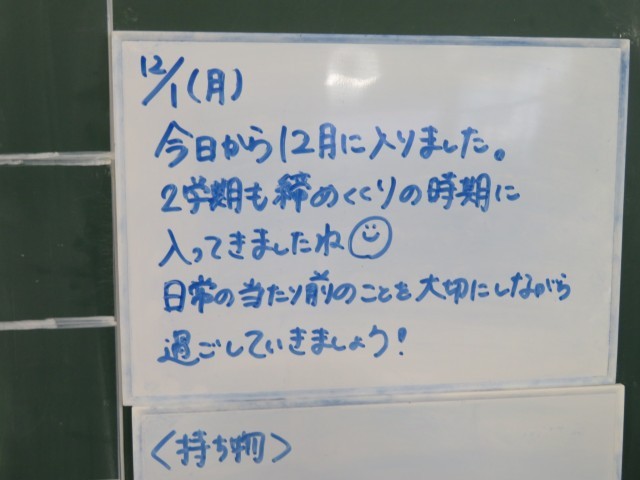 12/1(月)
今日から12月に入りました。
2学期も締めくくりの時期に
入ってきましたね
日常の当たり前のことを大切にしながら
過ごしていきましょう!
<持ち物>